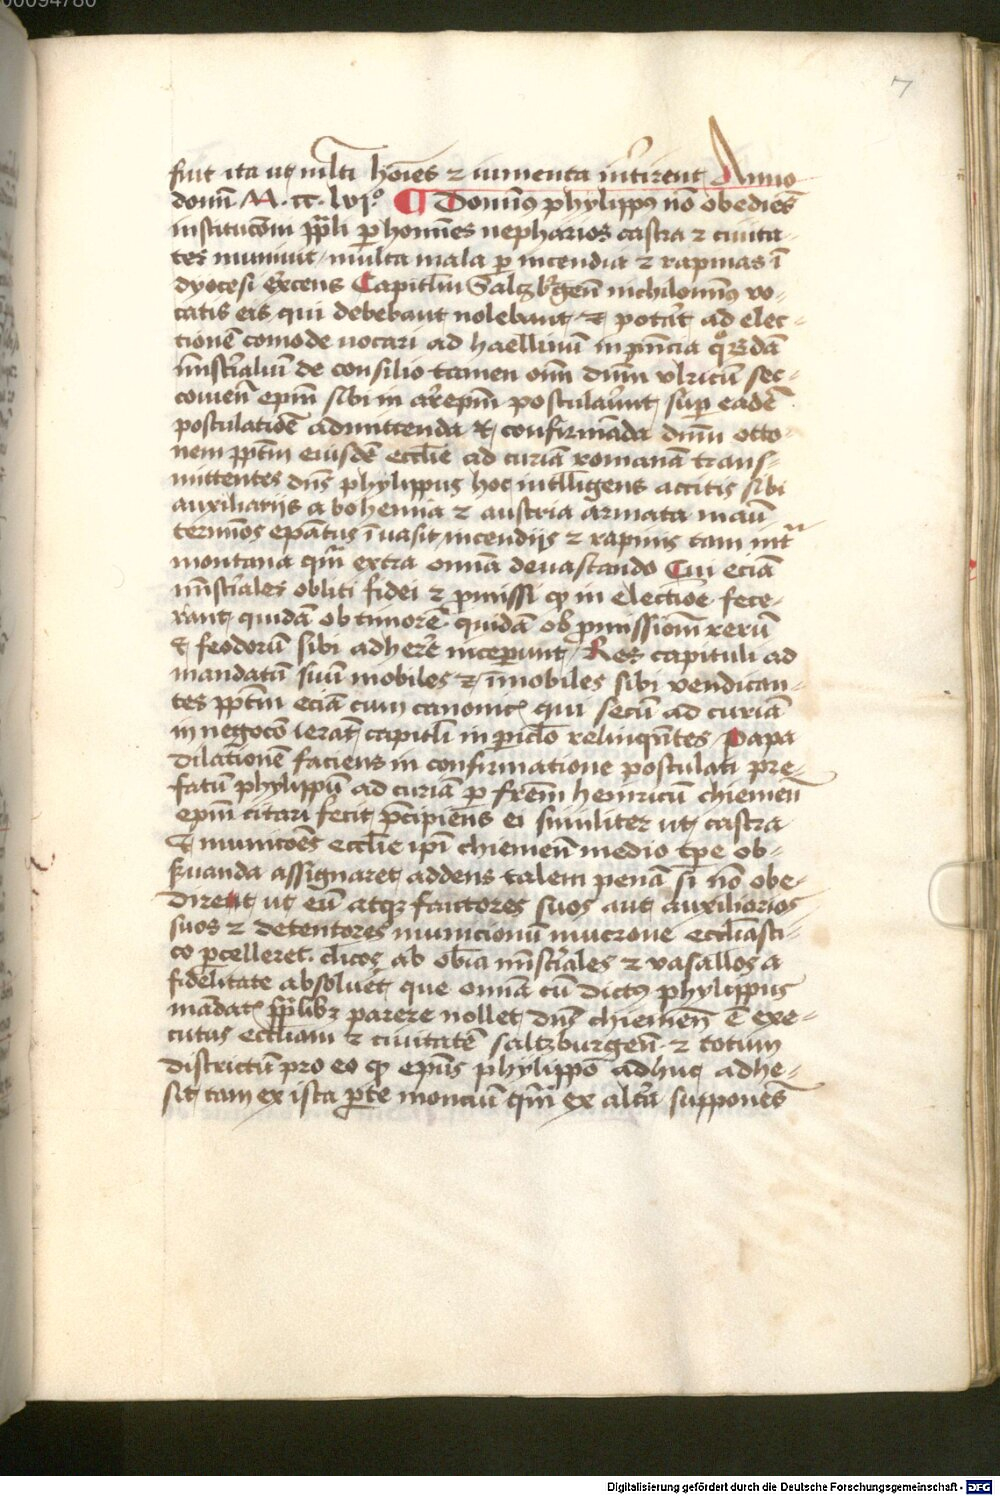 00094780
7
fuit ita ut ml̄ti hoīes ⁊ iumenta int̄irent Anno
domī M.cc.lvj.º ¶ Domin9 phylipp9 nō obediēs
institucōm pp̄li p homīnes nepharios castra ⁊ ciuita-
tes muniuit, multa mala p incendia ⁊ rapinas ī
dyocesi ex̄cens Capitl̄m Saltzb̄geñ nichilomin9 vo-
catis eis qui debebant nolebant ⁊ pot̄āt ad elec-
tionē comode uocari ad haellinū in pn̄cia qºr̄dā
mīst̄aliū de consilio tamen oīm dīm vlricū sec-
coueñ ep̄m sibi in arēp̄m postulau̅nt, sup eadē
postulationē admittenda ⁊ confirmāda dīm otto-
nem pp̄tm eiusdē eccl̄ie ad curiā romanā trans-
mittentes dn̄s phylippus hoc intl̄ligens accitis sibi
auxiliarijs a bohemia ⁊ austria armata manū
termīos ep̄atus ī uasit, incendijs ⁊ rapinis tam int̄
montana qm̄ extra om̄ia deuastando Cui eciā
mīst̄iales obliti fidei ⁊ p̄missi qꝫ in electiōe fece-
rant, quidā ob timorē quidā ob p̄missionm rerū
⁊ feodorū sibi adher̄e inceperunt, Res capituli ad
mandatū suū mobiles ⁊ īmobiles sibi vendican-
tes pp̄tm eciā cum canonic̄ qui secū ad curiā
in negoc̄o ierāt capitl̄i in picl̄o relinqn̄tes, Papa
dilationē faciens in confirmatione postulati pre-
fatū phylippū ad curiā p fr̄em heinricū chiemeñ
ep̄m citari fecit, p̄cipiens ei similiter ut castra
⁊ municōes eccl̄ie ip̄i chiemeñ medio tp̄e ob-
s̄uanda assignaret, addens talem penā si nō obe-
diret, ut eū atqꝫ fautores suos aut auxiliarios
suos ⁊ detentores municionū mucrone eccl̄iasti-
co p̄celleret. cl̄icos ab ob̄ia mīst̄iales ⁊ vasallos a
fidelitate absoluēt, que om̄ia cū dict9 phylippus
mādat̄ pp̄libꝫ parere nollet, dn̄s chiemeñ ē exe-
cutus eccl̄iam ⁊ ciuitatē saltzburgeñ ⁊ totum
districtū pro eo qꝫ ep̄us phylippō adhuc adhe-
sit, tam ex ista p̄te monciū qm̄ ex alt̄a supponēs
Digitalisierung gefördert durch die Deutsche Forschungsgemeinschaft - DFG